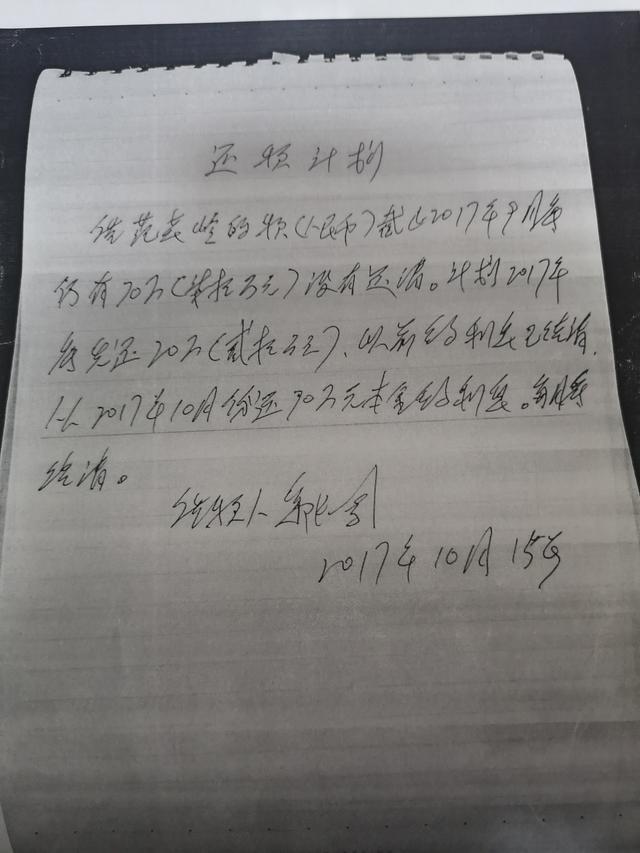 还款计划
借范燕的款(人民币)截止2017年9月底
仍有70万(柒拾万元)没有还清。计划2017年
底先还20万(贰拾万元)、以前的利息已结清.
从2017年10月份还70万元本金的利息。每月底
结清。
借款人
2017年10月15号